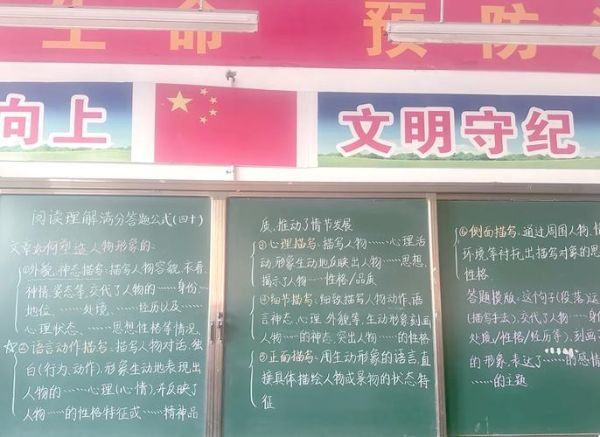 生命 预防
向上
文明守纪
阅读理解满分答题公式(四十)
文章如何塑造人物形象的:
①外貌、神态描写:描写人物容貌、衣着、
神情、姿态等,交代了人物的……身份、
地位、……处境、……经历以及……
心理状态、……思想性格等情况.
☆②语言动作描写:描写人物对话、独
白(行为、动作),形象生动地表现出
人物的……心理(心情),并反映了
人物……的性格特征或……精神品
质,推动了情节发展
③心理描写:描写人物……心理活
动,形象生动地反映出人物……思想,
揭示了人物…性格/品质
④细节描写:细致描写人物动作、语
言神态、心理、外貌等,生动形象刻画
人物…的神态,突出人物…的性格
⑤正面描写:用生动形象的语言直
接具体描绘人物或景物的状态特
征
⑥侧面描写:通过周围人物、情
环境等衬托出描写对象的思
性格
答题模版:这个句子(段落)运
(描写手法),交代了人物…身
处境/性格/经历等),刻画了
的形象,表达了……的感情
……的主题